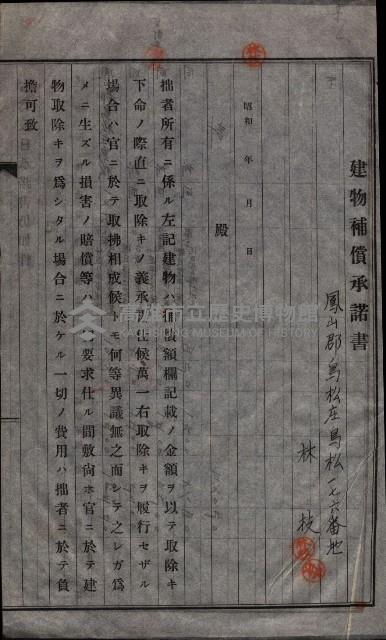 建物補償承諾書
鳳山郡鳥松庄鳥松一七六番地
林 枝
昭和 年 月 日
殿
拙者所有ニ係ル左記建物ハ補償額欄記載ノ金額ヲ以テ取除キ
下命ノ際直ニ取除キノ義承諾仕候萬一右取除キヲ履行セザル
場合ハ官ニ於テ取拂相成候トモ何等異議無之而シテ之レガ為
メニ生ズル損害ノ賠償等ハ要求仕ル間敷尚ホ官ニ於テ建
物取除キヲ為シタル場合ニ於ケル一切ノ費用ハ拙者ニ於テ負
擔可致
高雄市立歷史博物館
KAOHSIUNG MUSEUM OF HISTORY